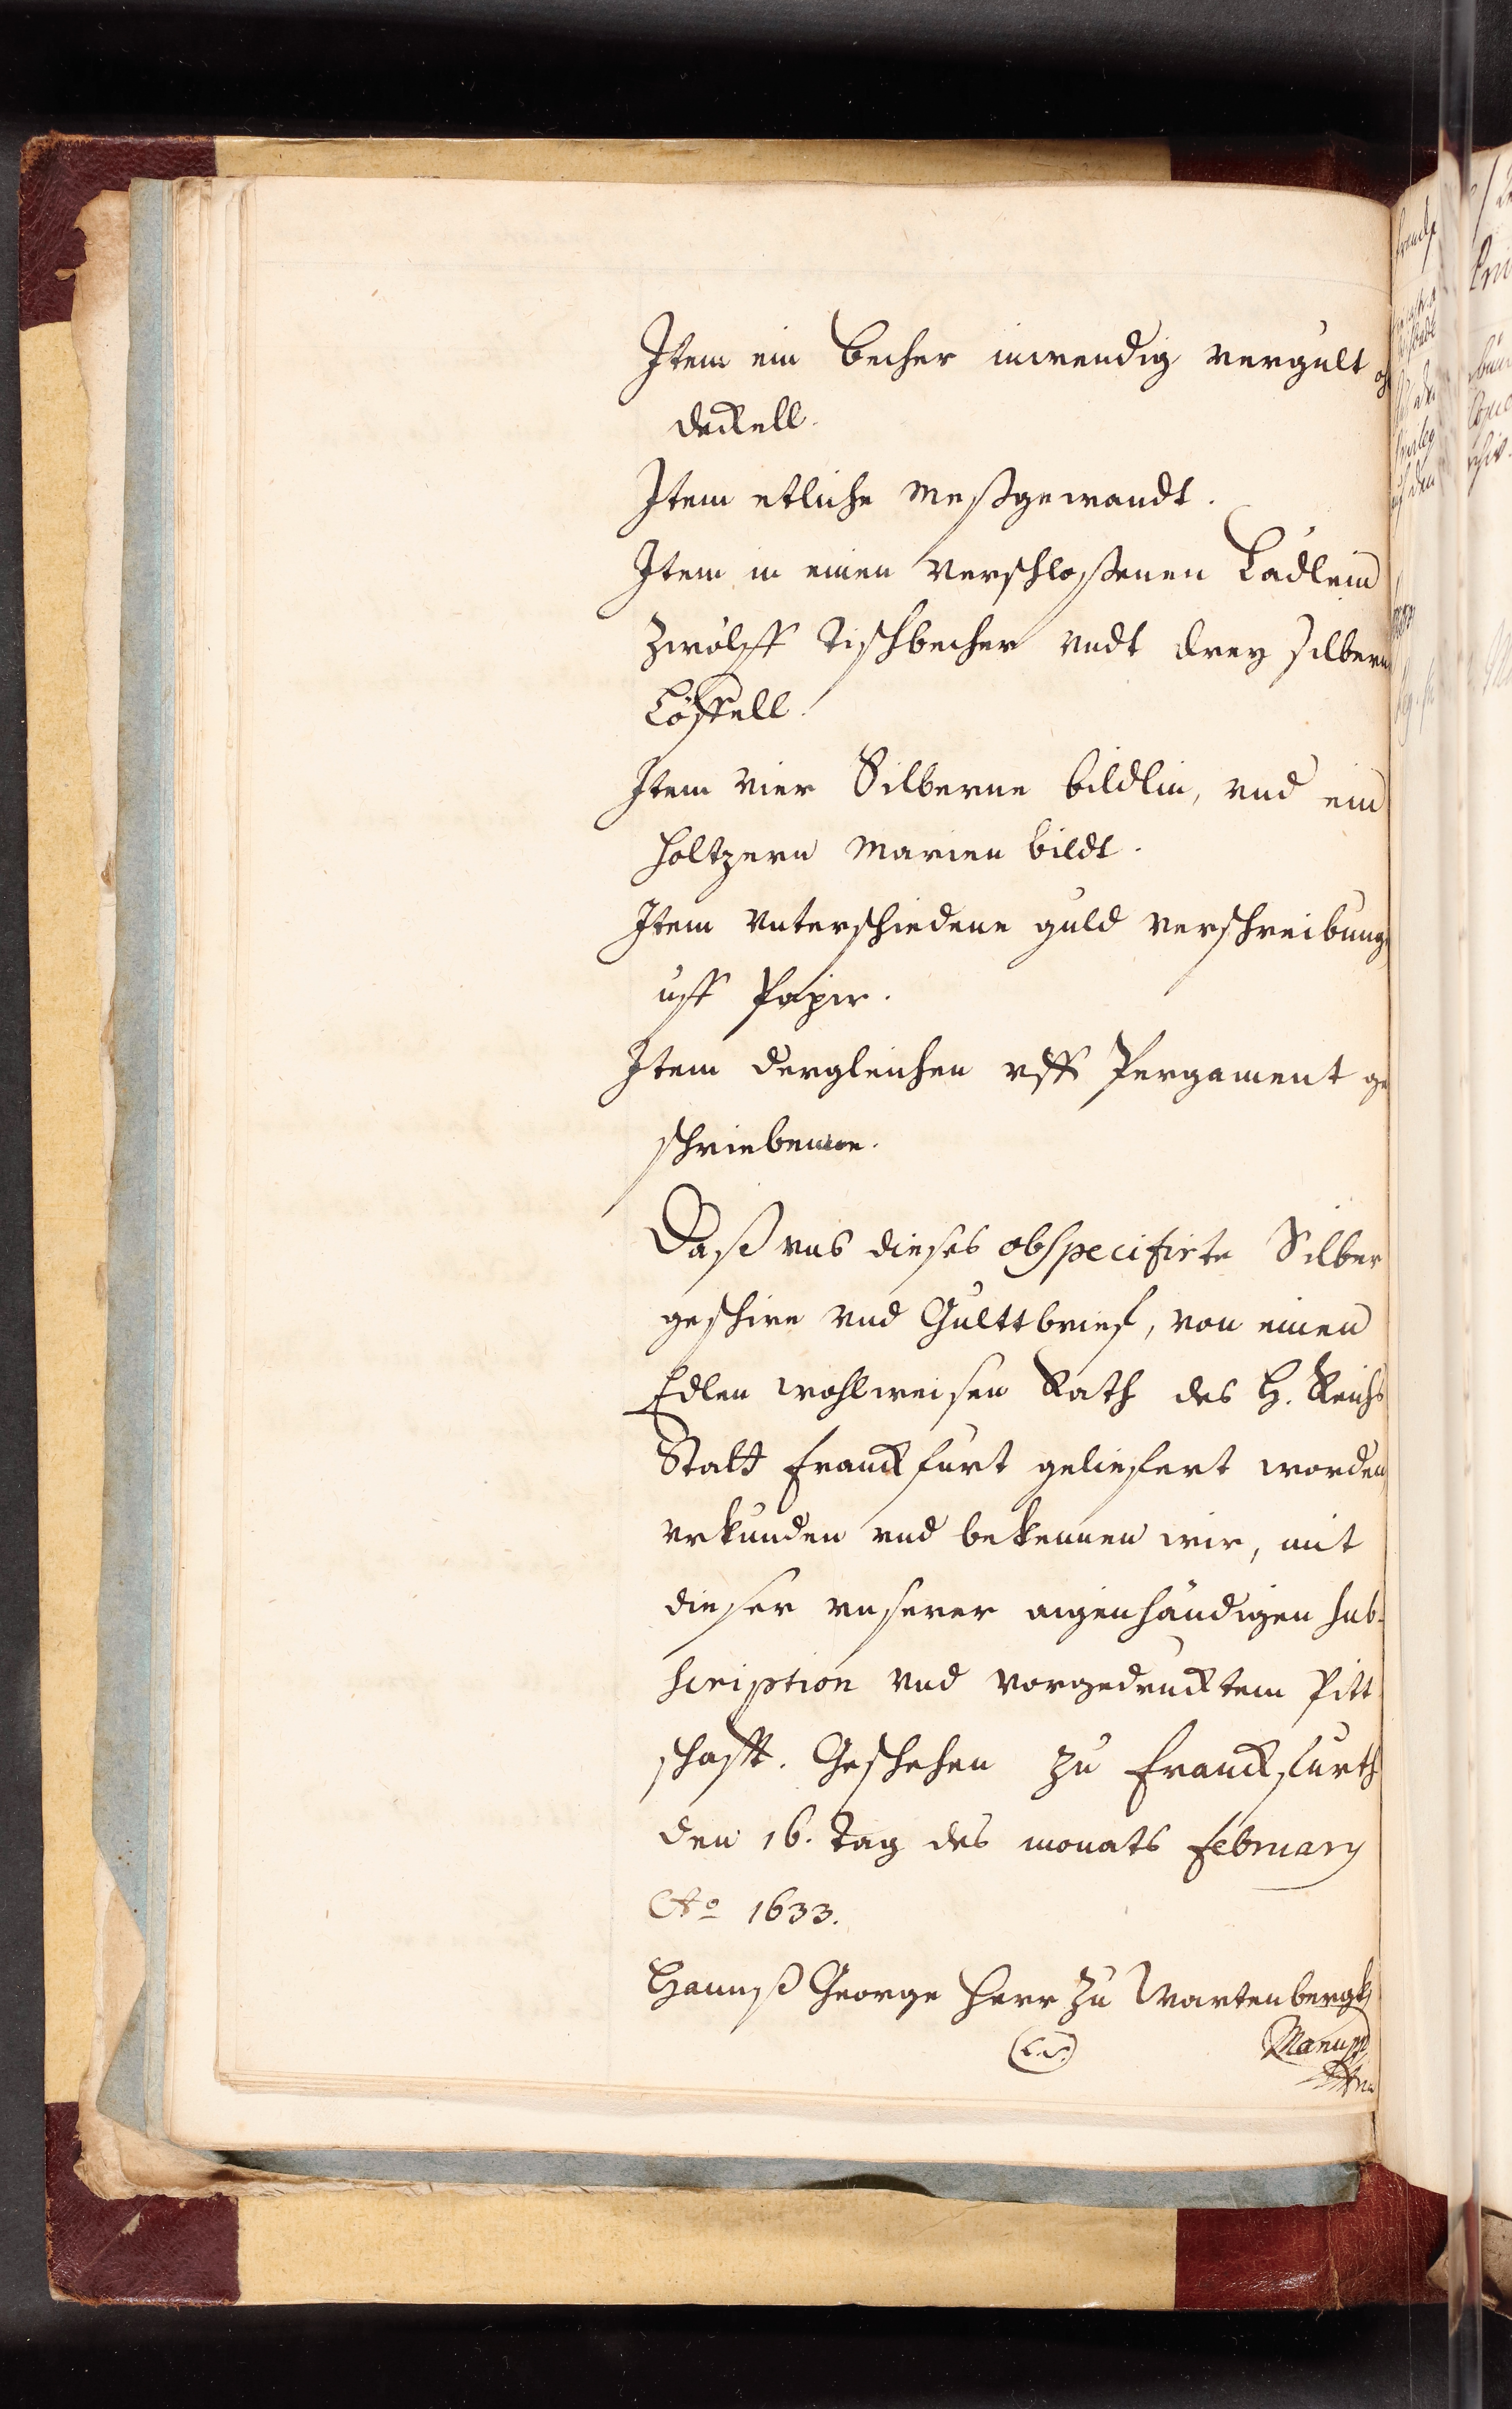 Item ein becher inwendig vergult
deckell.
Item etliche Meßgewandt.
Item in einen verschloßenen Lädlein
Zwölff Tischbecher vndt drey silbern
Löffell.
Item vier Silberne bildlin, vnd ein
holtzern Marien bildt.
Item vnterschiedene guld verschreibung
uff Papir.
Item dergleichen vff Pergament ge
schriebene.
Daß vns dieses obspecificirte Silber
geschirr vnd Gulttbrief, von einen
Edlen wohlweisen Rath des H. Reichs
Statt Franckfurt geliefert worden,
vrkunden vnd bekennen wir, mit
dieser vnserer aigenhändigen sub-
scription vnd vorgedrucktem Pitt
schafft. Geschehen zu Franckfurth
den 16. Tag des monats february
Ao 1633.
Hannß George Herr zu Wartenbergk
(L.S.) Manupp